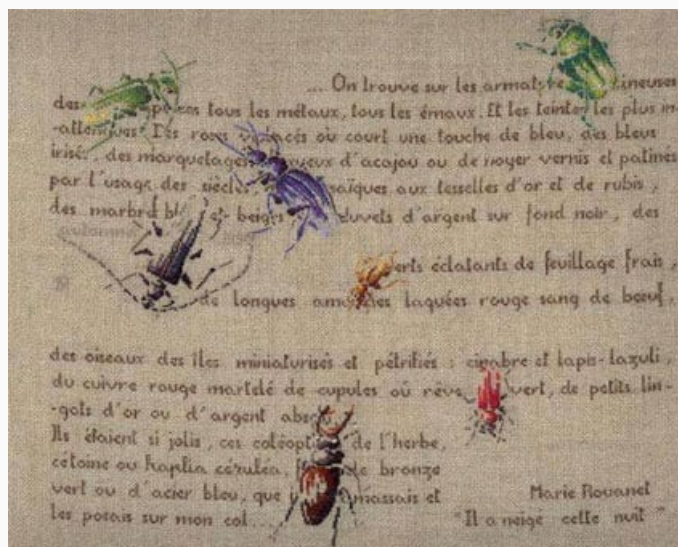 ... On trouve sur les
des tous les métaux, tous les émaux. Et les teintes les plus in-
-attendues. Des roses où court une touche de bleu, des bleus
irisés, des marquetages d'acajou ou de noyer vernis et patinés
par l'usage des siècles aux tesselles d'or et de rubis,
des et beiges duvets d'argent sur fond noir, des
automne
verts éclatants de feuillage frais,
de longues laquées rouge sang de bœuf,
des oiseaux des îles miniaturisés et pétrifiés : cinabre et lapis-lazuli,
du cuivre rouge martelé de cupules où rêve vert, de petits lin-
-gots d'or ou d'argent
Ils étaient si jolis, ces de l'herbe,
cétoine ou hoplia cérulea, de bronze
vert ou d'acier bleu, que et
les posais sur mon col...
Marie Rouanet
"Il a neigé cette nuit"